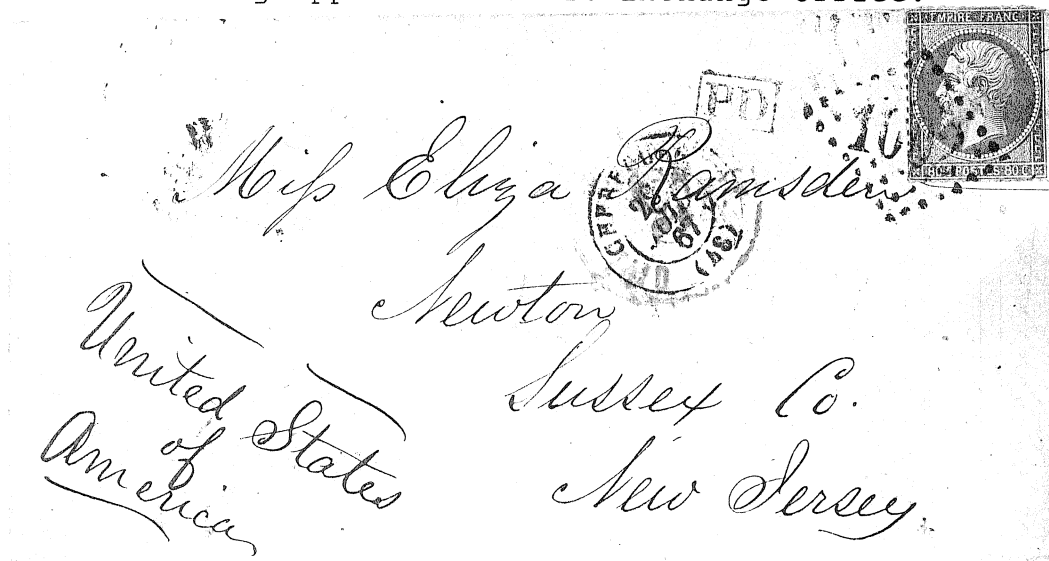 Exchange Office.
EMPIRE FRANC
PD
10
Miss Eliza Ramsden
67
Newton
Sussex Co.
New Jersey
United States
of
America